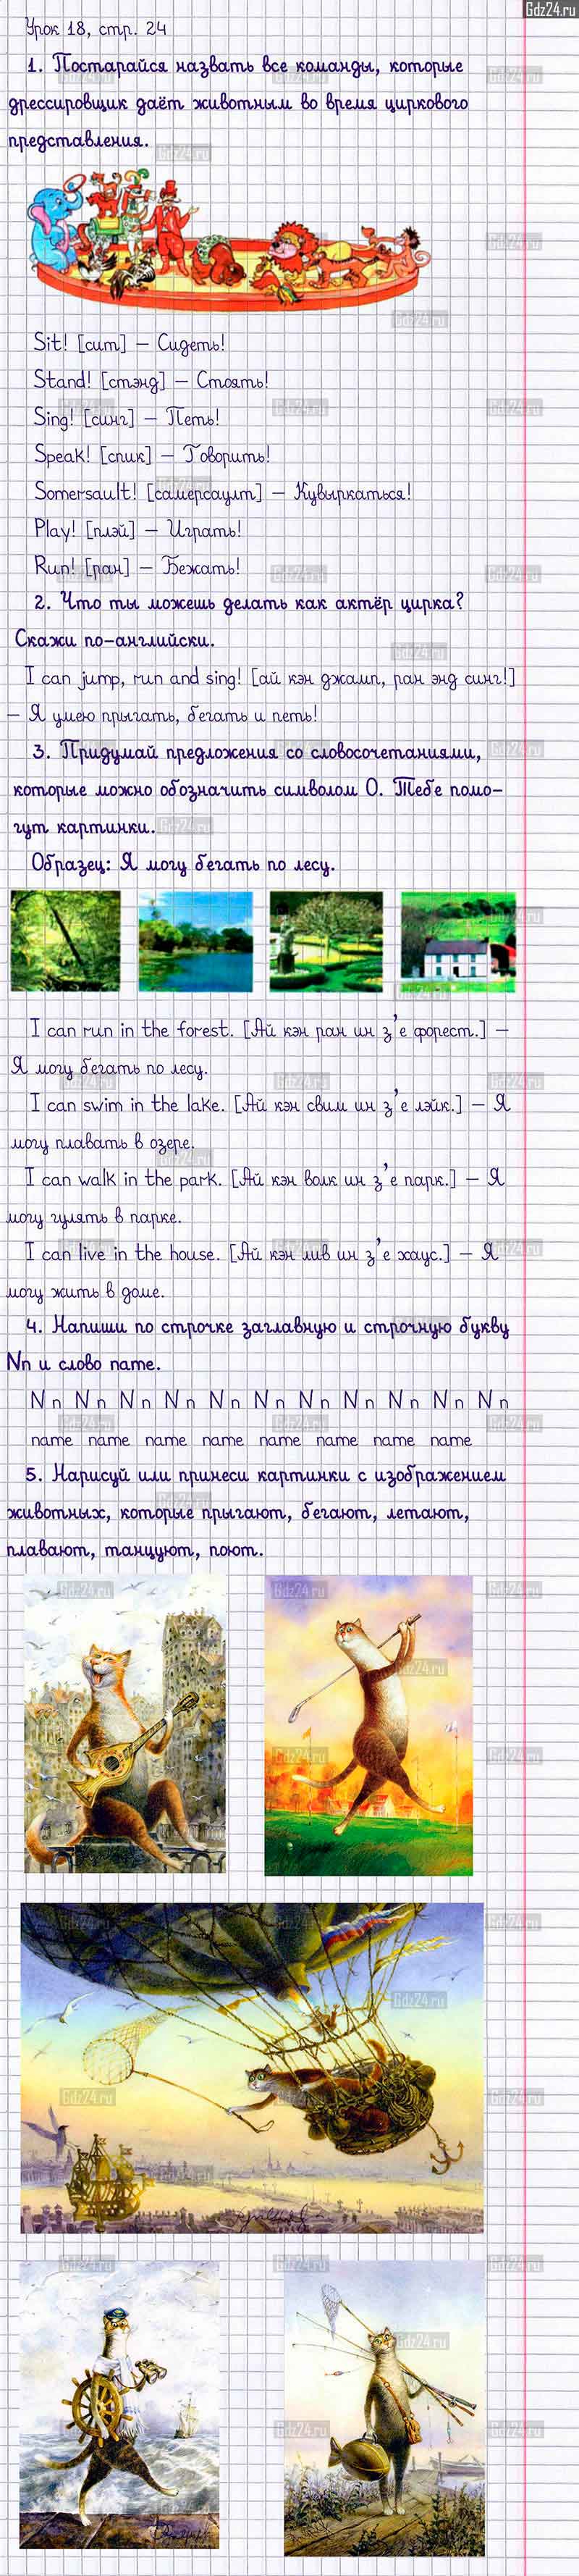 Gdz24.ru
Урок 18, стр. 24
1. Постарайся назвать все команды, которые
дрессировщик даёт животным во время циркового
представления.
Sit! [сит] – Сидеть!
Stand! [стэнд] – Стоять!
Sing! [синг] – Петь!
Speak! [спик] – Говорить!
Somersault! [самерсаулт] – Кувыркаться!
Play! [плэй] – Играть!
Run! [ран] – Бежать!
2. Что ты можешь делать как актёр цирка?
Скажи по-английски.
I can jump, run and sing! [ай кэн джамп, ран энд синг!]
– Я умею прыгать, бегать и петь!
3. Придумай предложения со словосочетаниями,
которые можно обозначить символом О. Тебе помо-
гут картинки.
Образец: Я могу бегать по лесу.
I can run in the forest. [Ай кэн ран ин з'е форест.] –
Я могу бегать по лесу.
I can swim in the lake. [Ай кэн свим ин з'е лэйк.] – Я
могу плавать в озере.
I can walk in the park. [Ай кэн волк ин з'е парк.] – Я
могу гулять в парке.
I can live in the house. [Ай кэн лив ин з'е хаус.] – Я
могу жить в доме.
4. Напиши по строчке заглавную и строчную букву
Nn и слово name.
N n N n N n N n N n N n N n N n N n N n N n
name name name name name name name name
5. Нарисуй или принеси картинки с изображением
животных, которые прыгают, бегают, летают,
плавают, танцуют, поют.